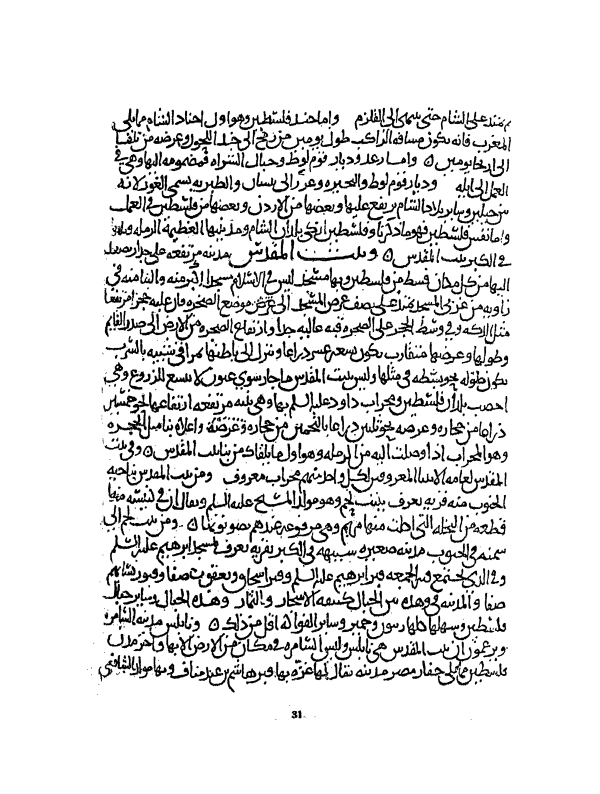 ثم يمتد على الشام حتى ينتهى الى القلزم واما جند فلسطين وهو اول اجناد الشام مما يلى
المغرب فانه يكون مسافة الراكب طول يومين من رفح الى حد اللجون وعرضه من يافا
الى اريحا يومين ٥ واما زغر وديار قوم لوط وجبال الشراه فمضمومه اليها وهى فى
العمل الى ايله وديار قوم لوط والبحيره وزغر الى بيسان والطبريه يسمى الغور لانه
بين جبلين وساير بلاد الشام يرتفع عليها وبعضها من الاردن وبعضها من فلسطين فى العمل
واما نفس فلسطين فهو ما ذكرنا وفلسطين ازكى بلدان الشام ومدينتها العظيمة الرمله
فى الكبر بيت المقدس ٥ وبيت المقدس مدينه مرتفعه على جبال يصعد
اليها من كل مكان قصد من فلسطين وبها مسجد ليس فى الاسلام مسجد اكبر منه والبنا منه فى
زاويه من غربى المسجد يمتد على نصف عرض المسجد الى موضع الصخره فان عليه حجرا مرتفعا
مثل الدكه وفى وسط الحجر على الصخره قبه عاليه جدا وارتفاع الصخره من الارض الى صدر القايم
وطولها وعرضها متقارب يكون بضعه عشر ذراعا وينزل الى باطنها بمراقى شبيه بالسرب
يكون طوله نحو بسطه فى مثلها وليس ببيت المقدس ما جار سوى عيون لا يتسع للزروع وهى
اخصب بلدان فلسطين ومحراب داود عليه السلم بها وهى بنيه مرتفعه ارتفاعها نحو خمسين
ذراعا من حجاره وعرضه نحو ثلثين ذراعا بالتخمين من حجاره واعلاه بنا مثل الحجره
وهو المحراب اذا وصلت اليه من الرمله وهو اول ما يلقاك من بنا بيت المقدس ٥ وفى بيت
المقدس لعامه الانبيا المعروفين لكل واحد منهم محراب معروف ومن بيت المقدس بناحيه
الجنوب منه قريه تعرف ببيت لحم وهو مولد المسيح عليه السلم ويقال ان فى كنيسه منها
قطعه من النخله التى اكلت منها مريم وهى مرفوعه عندهم يصونونها ٥ ومن بيت لحم الى
سمته فى الجنوب مدينه صغيره شبيهه فى الكبر بقريه تعرف بمسجد ابرهيم عليه السلم
وفى الذى يجتمع فيه الجمعه قبر ابرهيم عليه السلم وقبر اسحاق ويعقوب صفا وقبور نسايهم
صفا والمدينه فى وهده بين الجبال كثيفه الاشجار والثمار وهذه الجبال وساير جبال
فلسطين وسهلها زيتون وجميز وساير الفواكه اقل من ذلك ٥ ونابلس مدينه السامره
ويزعمون ان بيت المقدس هى نابلس وليس السامره فى مكان من الارض الا بها واخر مدن
فلسطين مما يلى جفار مصر مدينه يقال لها غزه بها قبر هاشم بن عبد مناف وبها مولد الشافعى
31